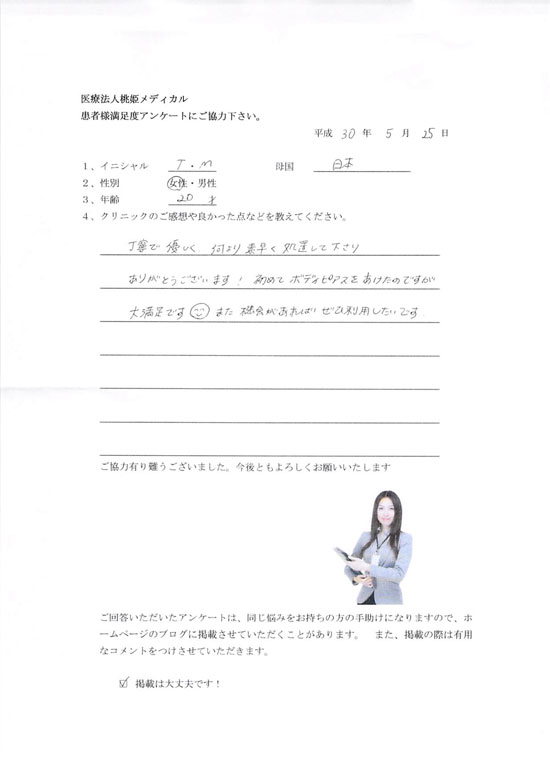 医療法人桃姫メディカル
患者様満足度アンケートにご協力下さい。
平成 30 年 5 月 25 日
1、イニシャル T・M 母国 日本
2、性別 女性・男性
3、年齢 20 才
4、クリニックのご感想や良かった点などを教えてください。
丁寧で優しく、何より素早く処置して下さり
ありがとうございます！ 初めてボディピアスをあけたのですが
大満足です また機会があればぜひ利用したいです。
ご協力有り難うございました。今後ともよろしくお願いいたします
ご回答いただいたアンケートは、同じ悩みをお持ちの方の手助けになりますので、ホ
ームページのブログに掲載させていただくことがあります。 また、掲載の際は有用
なコメントをつけさせていただきます。
☑ 掲載は大丈夫です！